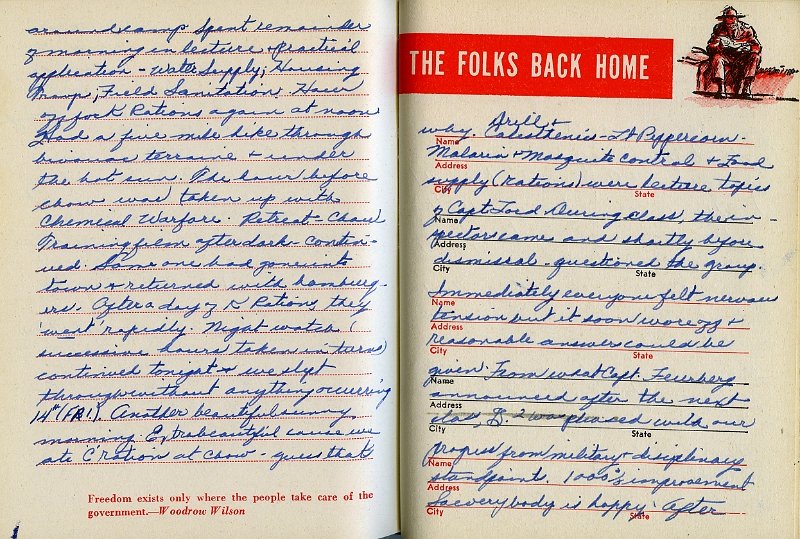 around camp Spent remainder
of morning in lecture & Practical
application - Water Supply; Housing
Troops; Field Sanitation. Have
of for K Rations again at noon
Had a five mile hike through
bivouac terraine & under
the hot sun. The hour before
chow was taken up with
Chemical Warfare. Retreat - Chow
Training film after dark - Contin-
ued. Some one had gone into
town & returned with hamburg-
ers. After a day of K Rations, they
"went" rapidly. Night watch (
successive hours taken in turns)
continued tonight & we slept
through without anything occurring
14th (FRI). Another beautiful sunny
morning. Extra beautiful cause we
ate C ration at chow - guess that
Freedom exists only where the people take care of the
government.—Woodrow Wilson
THE FOLKS BACK HOME
why. Drill &
Calesthenics - Lt Peppercorn -
Name
Malaria & Mosquito Control & Food
Address
supply (Rations) were lecture topics
City State
of Capt Ford During class, the in-
Name
spectors came and shortly before
Address
dismissal - questioned the group.
City State
Immediately everyone felt nervous
Name
tension but it soon wore off &
Address
reasonable answers could be
City State
given. From what Capt. Feuerberg
Name
announced after the next
Address
class, B. 2 was pleased with our
City State
progress from military & disciplinary
Name
standpoint. 100% improvement
Address
So everybody is happy. After
City State